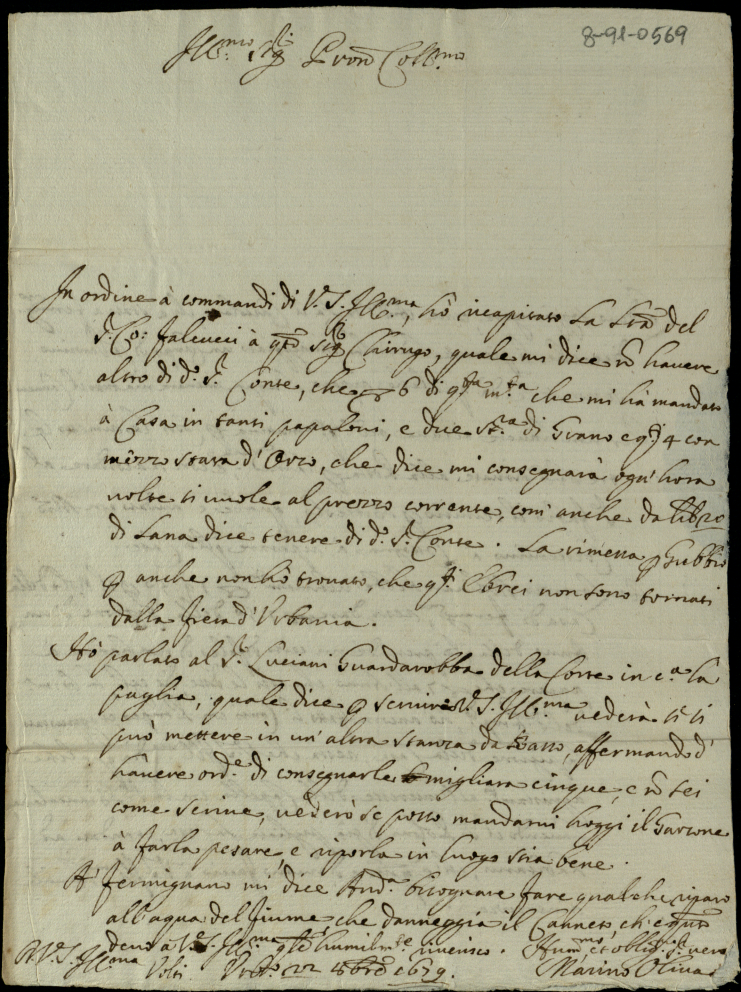 8-91-0569
Ill.mo Sig.r Pron Coll.mo
In ordine à commandi di V.S. Ill.ma, hò ricapitato la Lra del
S.r Co: Falcucci à q.to Sig.r Chirugo, quale mi dice nõ havere
altro di d.o S.r Conte, che 6 di q.sta m.ta che mi hà mandato
à Casa in tanti papaloni, e due st.ra di Grano e q.ti 4 con
mezzo stara d'Orzo, che dice mi consegnarà ogn'hora
volte si vuole al prezzo corrente, com'anche da libr 20
di Lana dice tenere di d.o S.r Conte. La rimessa p Gubbio
p anche non hò trovato, che q.ti Ebrei non sono tornati
dalla fiera d'Urbania.
Hò parlato al S.r Luciani Guardarobba della Corte in c.a la
paglia, quale dice p servire V.S. Ill.ma vederà se si
può mettere in un'altra stanza da basso, affermando d'
havere ord.e di consegnarle migliara cinque, e nõ sei
come scrive, vederò se posso mandarvi hoggi il Garzone
à farla pesare, e riporla in luogo stia bene.
A' Fermignano mi dice And.a bisognare fare qualche riparo
all'aqua del fiume che danneggia il Canneto, ch'è q.to
devo à V.S. Ill.ma humilm.te riverisco. Hum.mo et oblig.mo S.r vero
D.V.S. Ill.ma Urb.o 22 8bre 1679. Marino Oliva